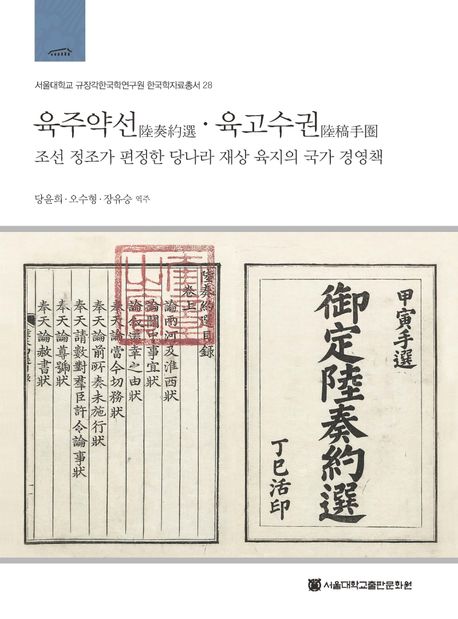 서울대학교 규장각한국학연구원 한국학자료총서 28
육주약선陸奏約選 · 육고수권陸稿手圈
조선 정조가 편정한 당나라 재상 육지의 국가 경영책
당윤희·오수형·장유승 역주
甲寅手選
御定陸奏約選
丁巳活印
陸奏約選目錄
卷上
論兩河及淮西狀
論關中事宜狀
論叙遷幸之由狀
奉天論當今切務狀
奉天論前所奏未施行狀
奉天請數對羣臣許令論事狀
奉天論尊號狀
奉天論赦書狀
서울대학교출판문화원